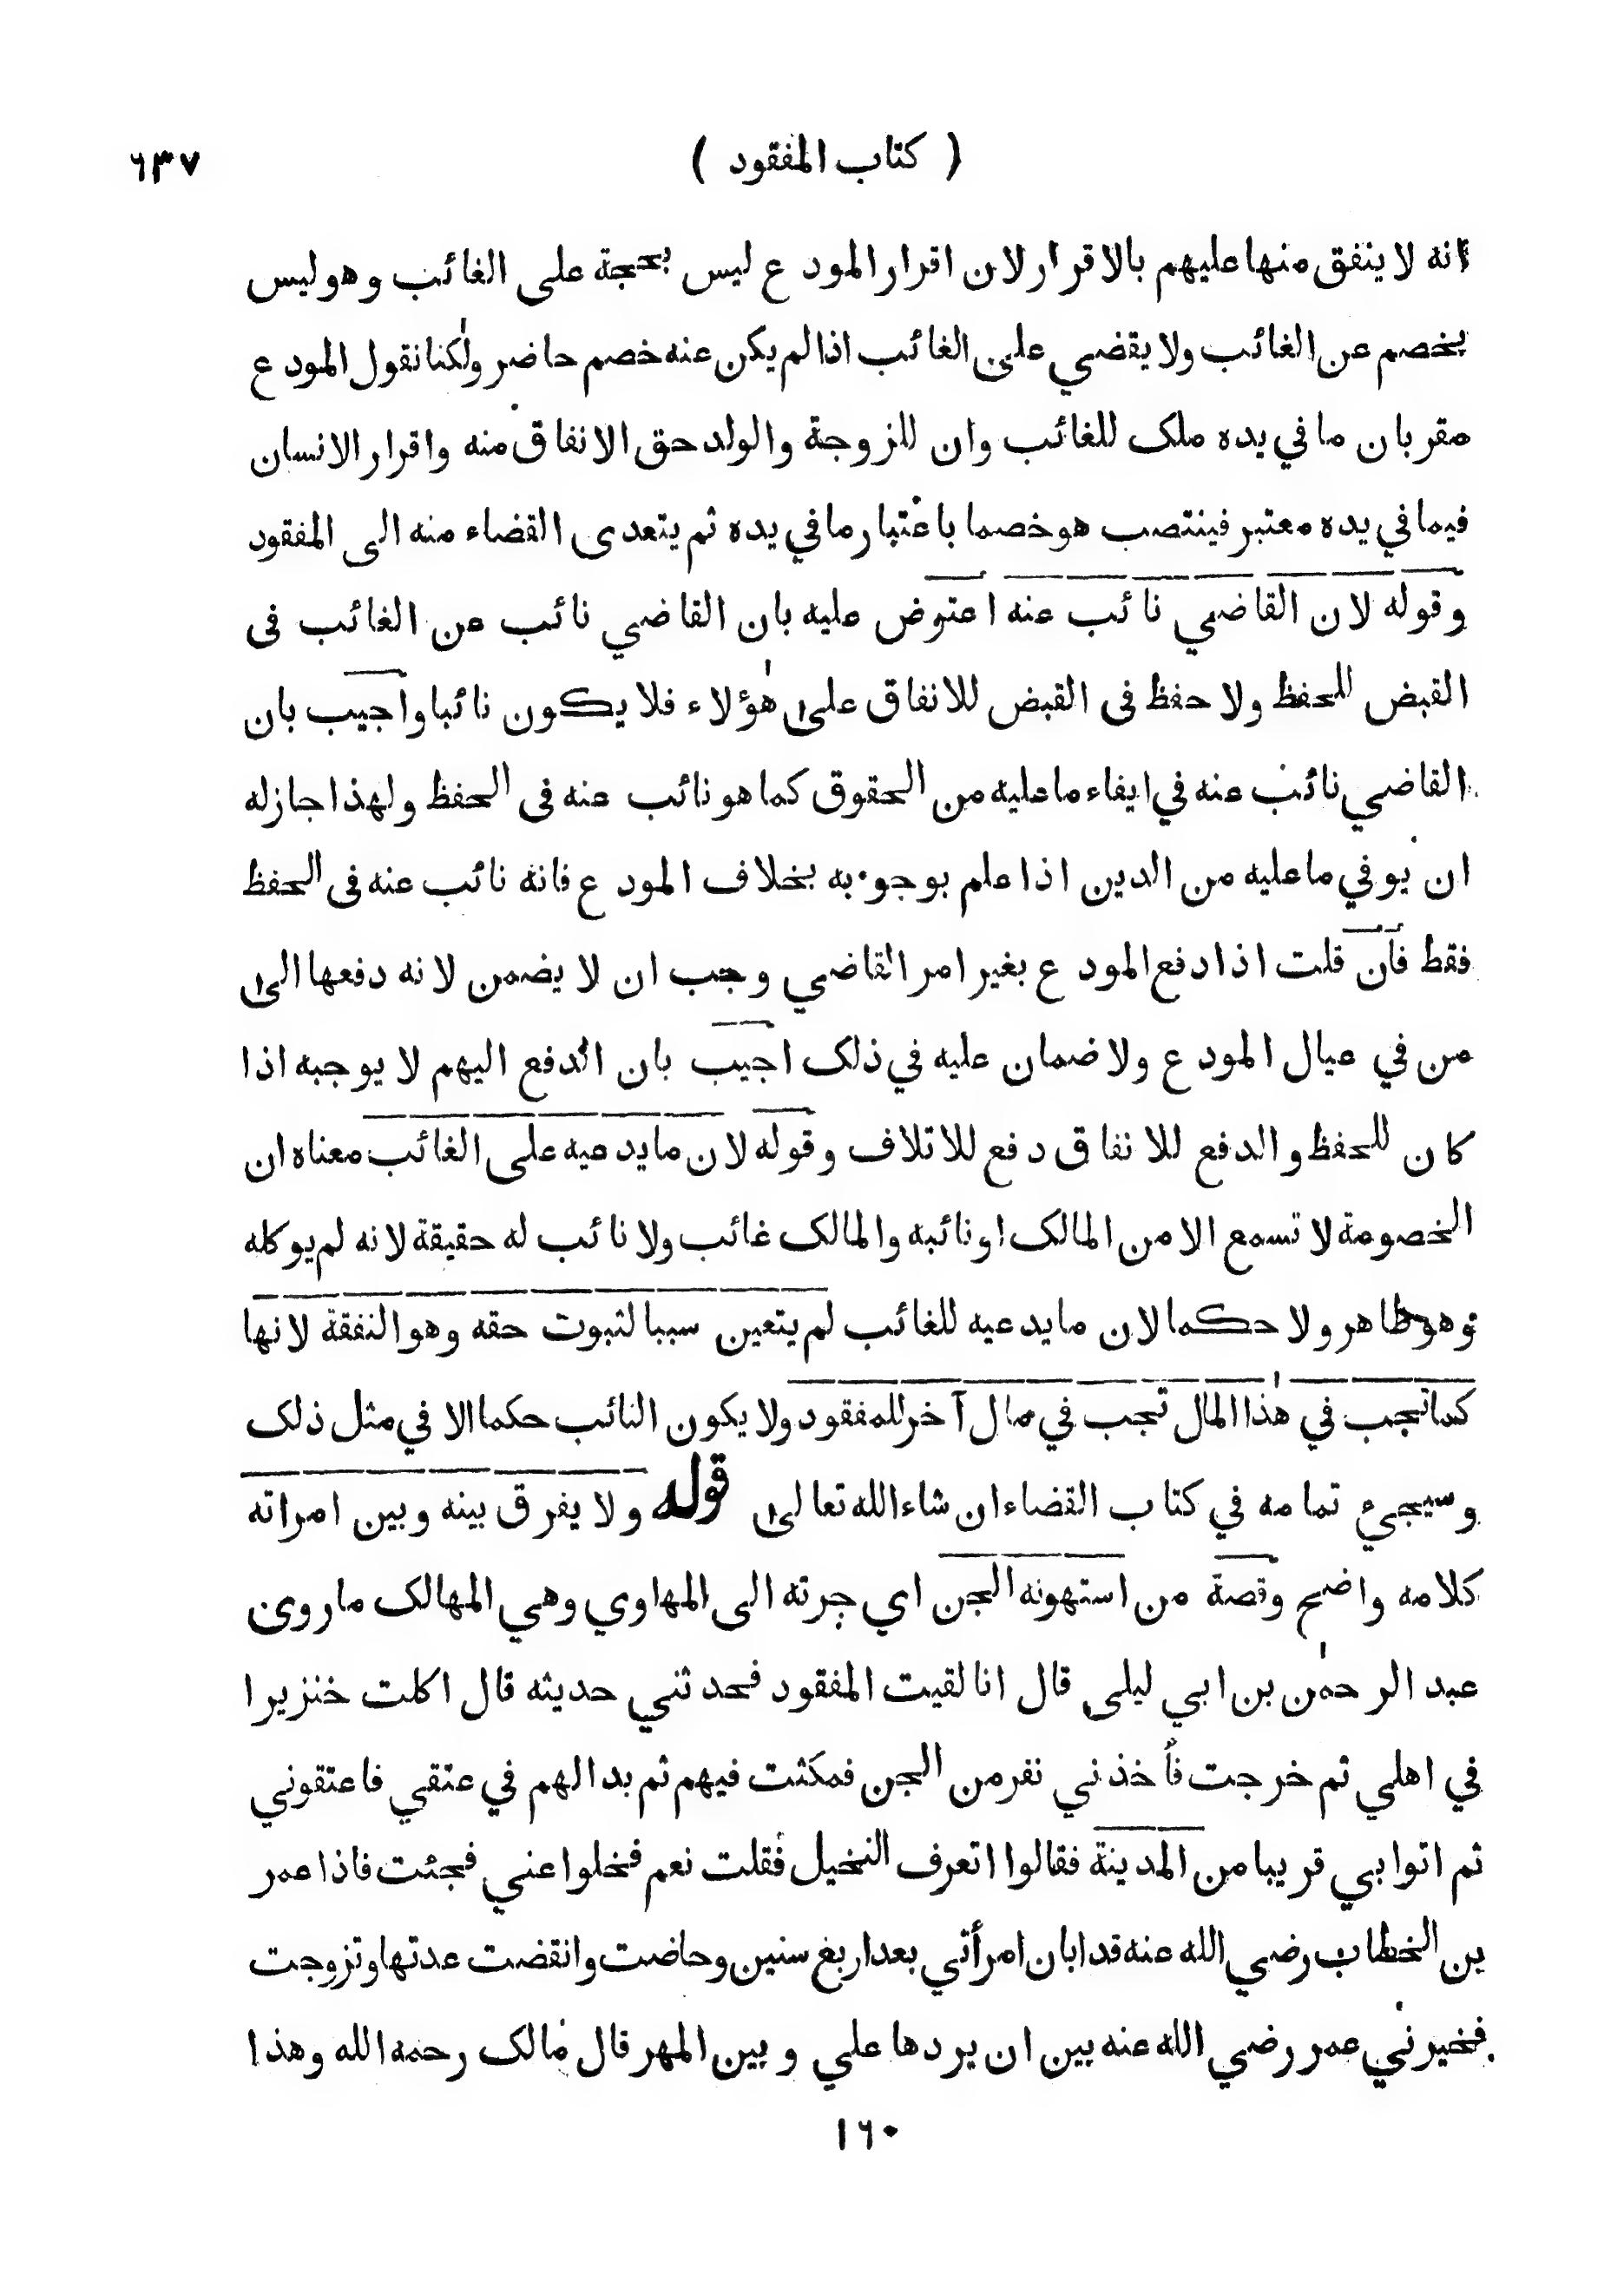 ( كتاب المفقود )
٦٣٧
انه لا ينفق منها عليهم بالاقرار لان اقرار المودع ليس بحجة على الغائب وهو ليس
بخصم عن الغائب ولا يقضي على الغائب اذا لم يكن عنه خصم حاضر ولكنا نقول المودع
مقر بان ما في يده ملك للغائب وان للزوجة والولد حق الانفاق منه واقرار الانسان
فيما في يده معتبر فينتصب هو خصما باعتبار ما في يده ثم يتعدى القضاء منه الى المفقود
وقوله لان القاضي نائب عنه اعترض عليه بان القاضي نائب عن الغائب فى
القبض للحفظ ولا حفظ فى القبض للانفاق على هؤلاء فلا يكون نائبا واجيب بان
القاضي نائب عنه في ايفاء ما عليه من الحقوق كما هو نائب عنه فى الحفظ ولهذا جاز له
ان يوفي ما عليه من الدين اذا علم بوجوبه بخلاف المودع فانه نائب عنه فى الحفظ
فقط فان قلت اذا دفع المودع بغير امر القاضي وجب ان لا يضمن لانه دفعها الى
من في عيال المودع ولا ضمان عليه في ذلك اجيب بان الدفع اليهم لا يوجبه اذا
كان للحفظ والدفع للانفاق دفع للاتلاف وقوله لان ما يدعيه على الغائب معناه ان
الخصومة لا تسمع الا من المالك او نائبه والمالك غائب ولا نائب له حقيقة لانه لم يوكله
وهو ظاهر ولا حكما لان ما يدعيه للغائب لم يتعين سببا لثبوت حقه وهو النفقة لانها
كما تجب في هذا المال تجب في مال آخر للمفقود ولا يكون النائب حكما الا في مثل ذلك
وسيجيء تمامه في كتاب القضاء ان شاء الله تعالى قوله ولا يفرق بينه وبين امراته
كلامه واضح وقصة من استهوته الجن اي جرته الى المهاوي وهي المهالك ما روى
عبد الرحمن بن ابي ليلى قال انا لقيت المفقود فحدثني حديثه قال اكلت خنزيرا
في اهلي ثم خرجت فأخذني نفر من الجن فمكثت فيهم ثم بدا لهم في عتقي فاعتقوني
ثم اتوا بي قريبا من المدينة فقالوا اتعرف النخيل فقلت نعم فخلوا عني فجئت فاذا عمر
بن الخطاب رضي الله عنه قد ابان امرأتي بعد اربع سنين وحاضت وانقضت عدتها وتزوجت
فخيرني عمر رضي الله عنه بين ان يردها علي وبين المهر قال مالك رحمه الله وهذا
١٦٠